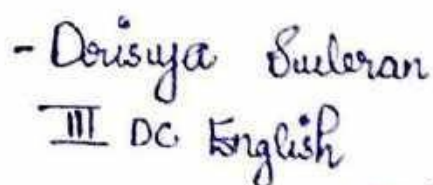 - Dorisya Suderan
III DC English